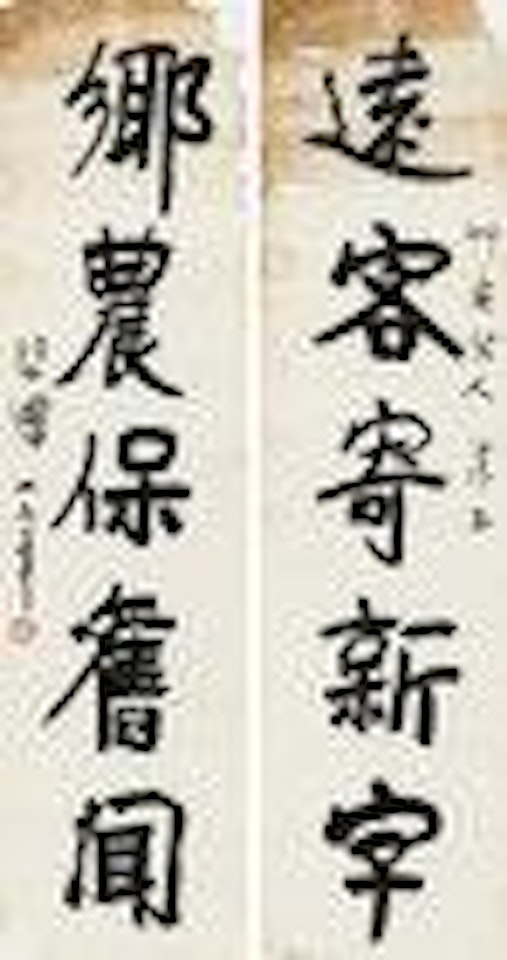 遠客寄新字
鄉農保舊聞